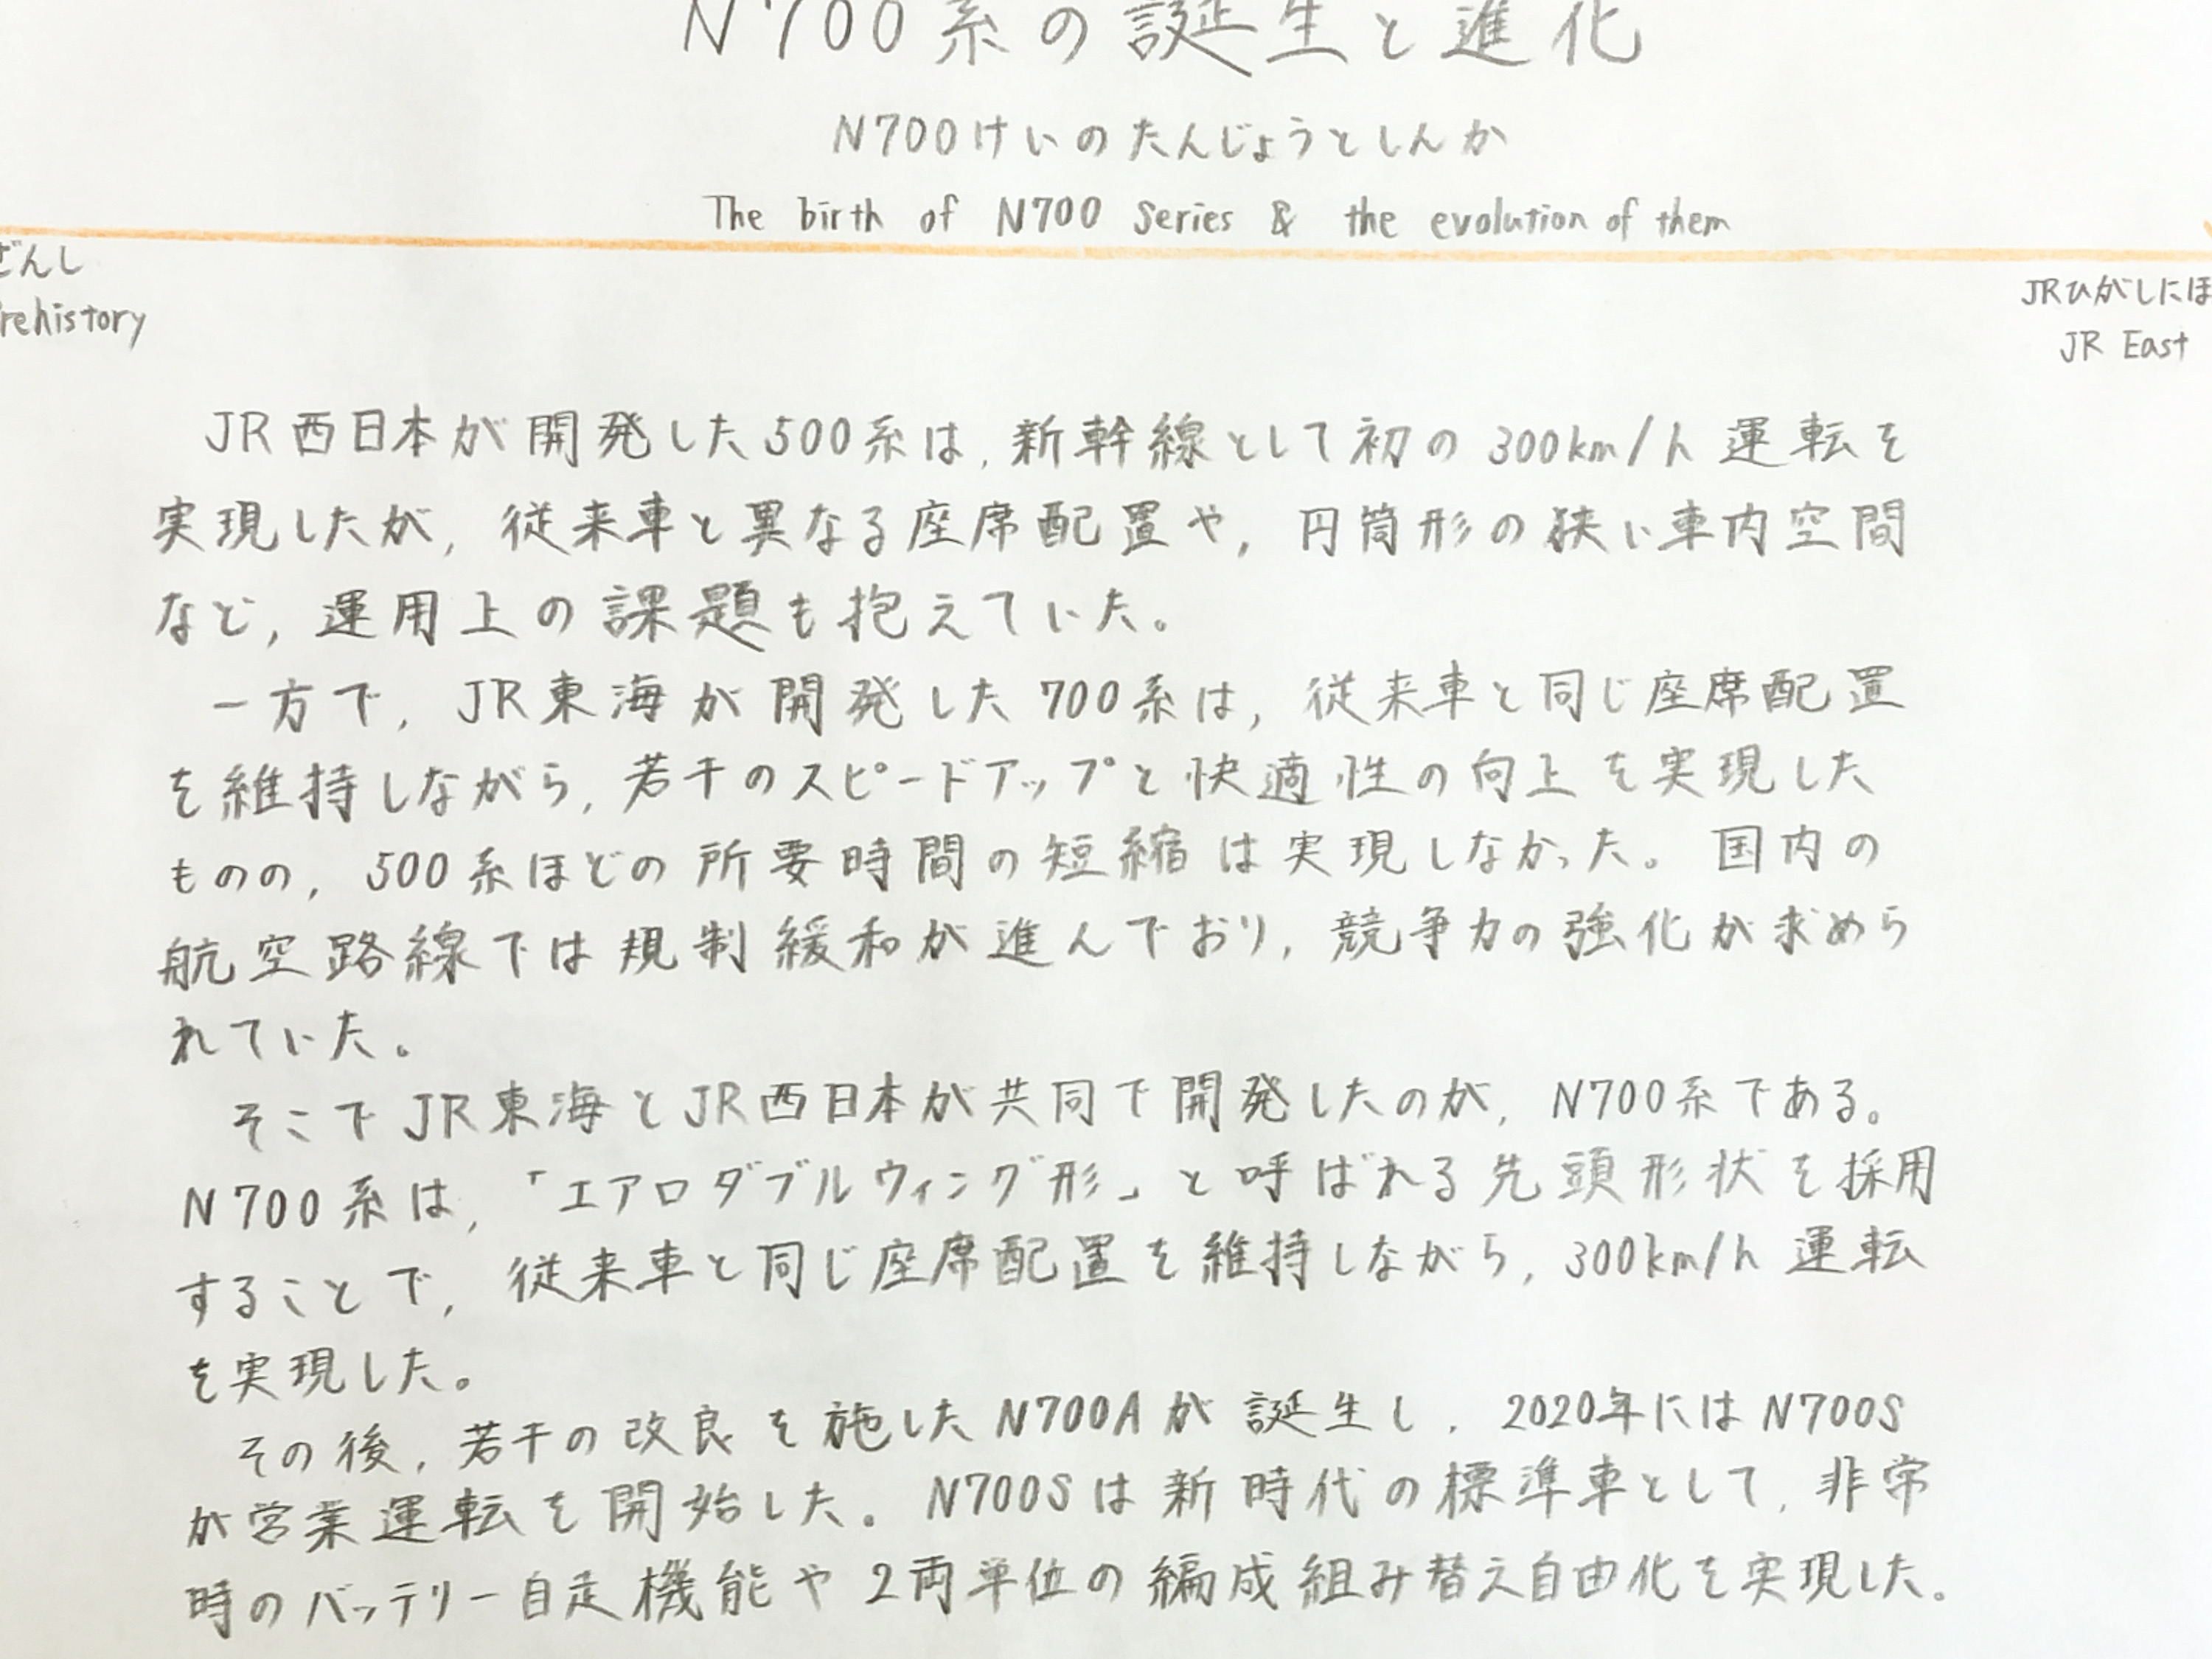 N700系の誕生と進化
N700けいのたんじょうとしんか
The birth of N700 Series & the evolution of them
ぜんし
rehistory
JRひがしにほ
JR East
JR西日本が開発した500系は,新幹線として初の300km/h運転を
実現したが,従来車と異なる座席配置や,円筒形の狭い車内空間
など,運用上の課題も抱えていた。
一方で,JR東海が開発した700系は,従来車と同じ座席配置
を維持しながら,若干のスピードアップと快適性の向上を実現した
ものの,500系ほどの所要時間の短縮は実現しなかった。国内の
航空路線では規制緩和が進んでおり,競争力の強化が求めら
れていた。
そこでJR東海とJR西日本が共同で開発したのが,N700系である。
N700系は,「エアロダブルウィング形」と呼ばれる先頭形状を採用
することで,従来車と同じ座席配置を維持しながら,300km/h運転
を実現した。
その後,若干の改良を施したN700Aが誕生し,2020年にはN700S
が営業運転を開始した。N700Sは新時代の標準車として,非常
時のバッテリー自走機能や2両単位の編成組み替え自由化を実現した。